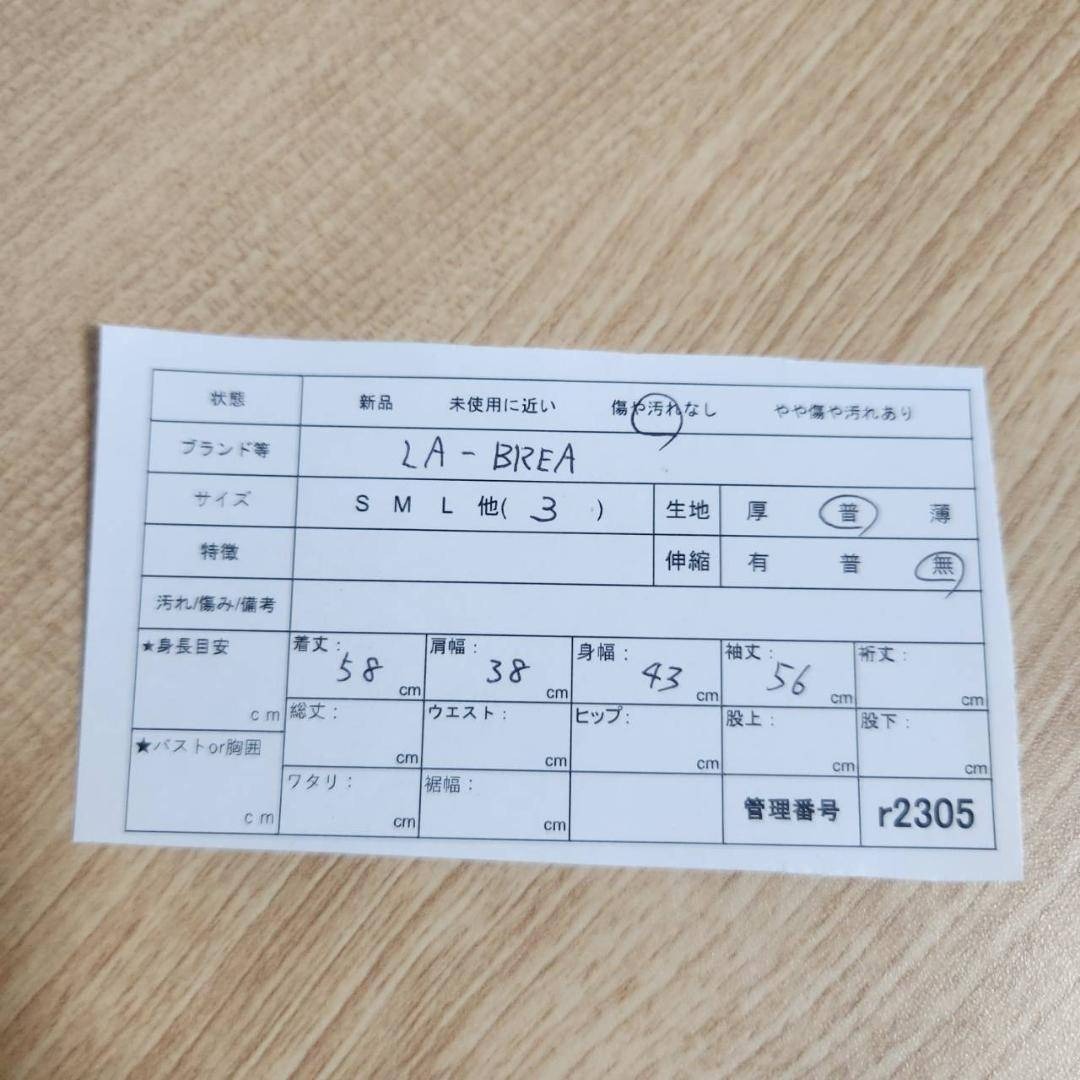 状態 新品 未使用に近い 傷や汚れなし やや傷や汚れあり
ブランド等 LA-BREA
サイズ S M L 他( 3 ) 生地 厚 普 薄
特徴 伸縮 有 普 無
汚れ/傷み/備考
★身長目安 cm 着丈: 58 cm 肩幅: 38 cm 身幅: 43 cm 袖丈: 56 cm 裄丈: cm
総丈: cm ウエスト: cm ヒップ: cm 股上: cm 股下: cm
★バストor胸囲 cm ワタリ: cm 裾幅: cm 管理番号 r2305